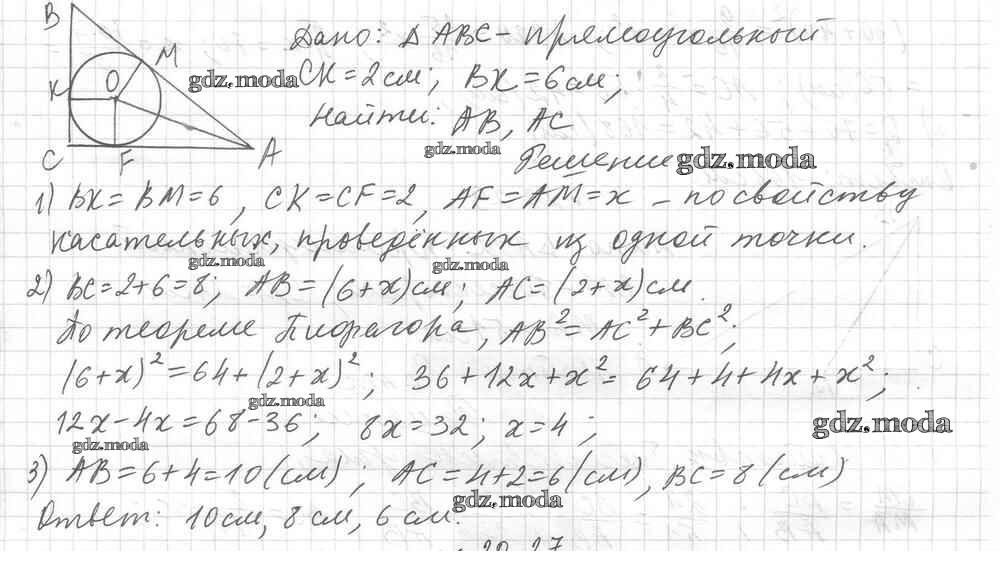 B
M
O
K
C
F
A
Дано: Δ ABC - прямоугольный
gdz.moda
CK = 2 см; BK = 6 см;
Найти: AB, AC
gdz.moda
Решение
gdz.moda
1) BK = BM = 6, CK = CF = 2, AF = AM = x - по свойству
касательных, проведённых из одной точки.
gdz.moda
gdz.moda
2) BC = 2+6 = 8; AB = (6+x) см; AC = (2+x) см.
По теореме Пифагора, AB² = AC² + BC²;
(6+x)² = 64 + (2+x)²; 36 + 12x + x² = 64 + 4 + 4x + x²;
gdz.moda
12x - 4x = 68 - 36; 8x = 32; x = 4;
gdz.moda
gdz.moda
3) AB = 6+4 = 10 (см); AC = 4+2 = 6 (см), BC = 8 (см)
gdz.moda
Ответ: 10 см, 8 см, 6 см.